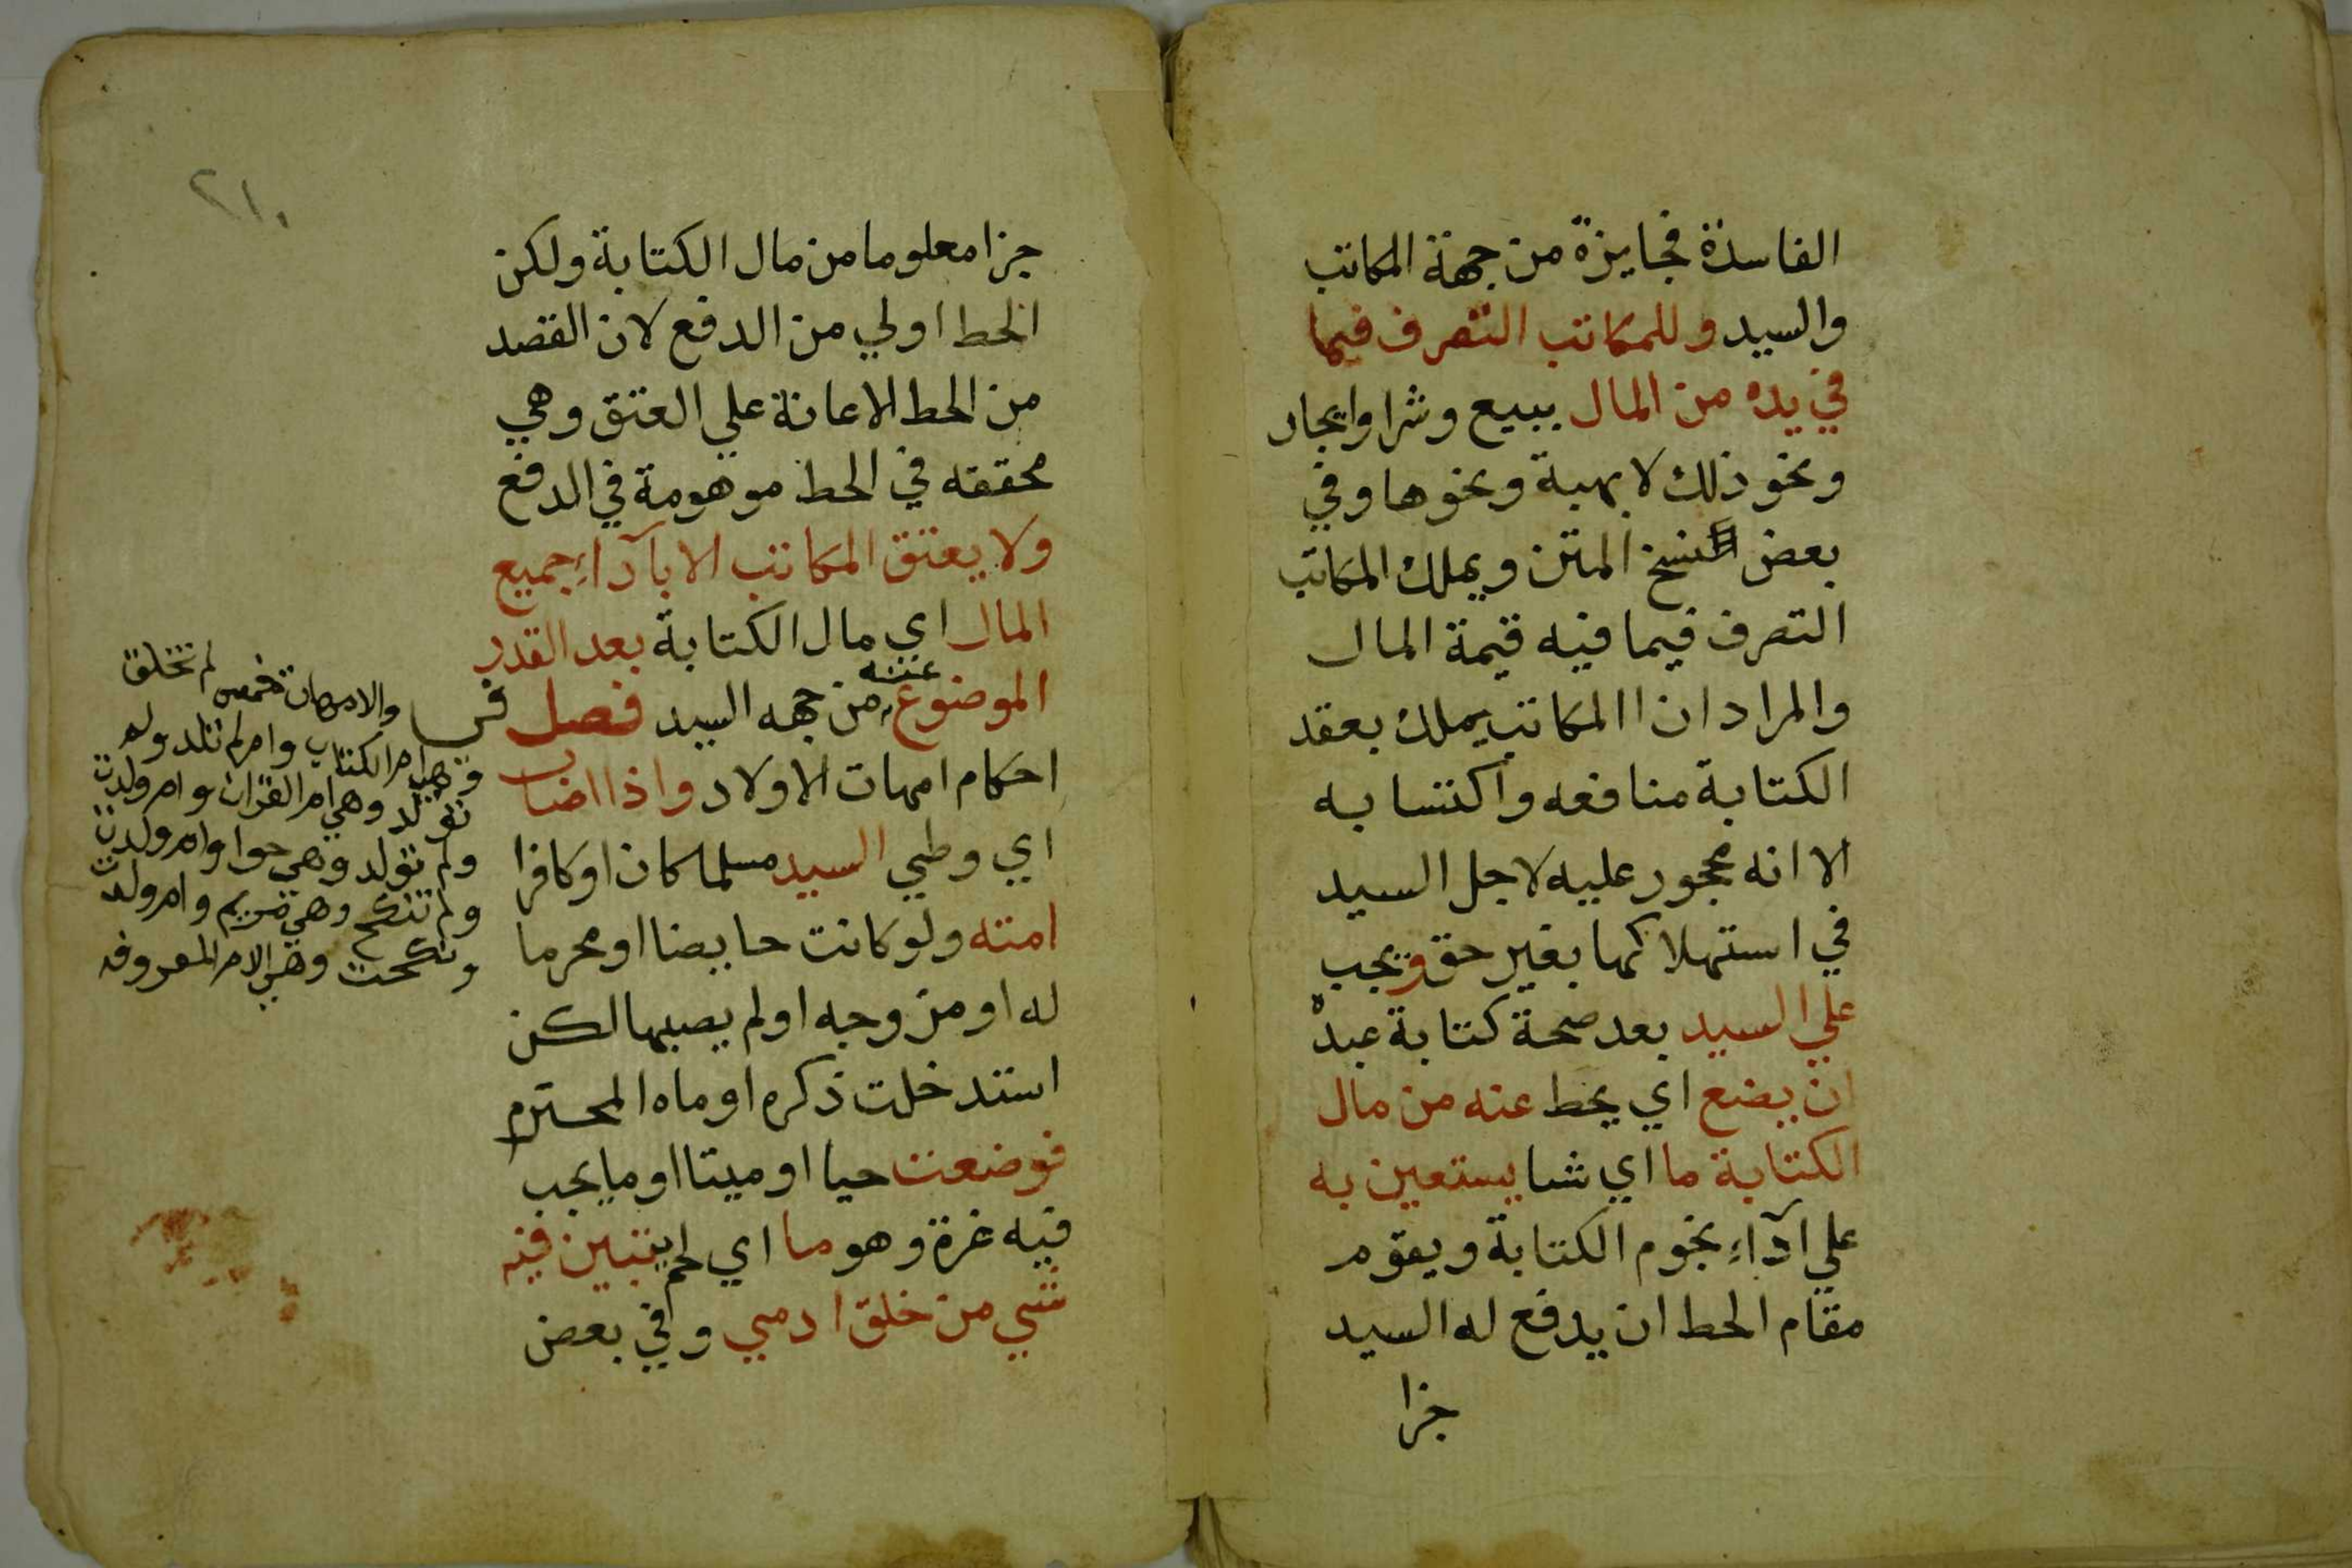 الفاسدة فجايزة من جهة المكاتب
والسيد وللمكاتب التصرف فيما
في يده من المال ببيع وشرا وايجار
ونحو ذلك لا بهبة ونحوها وفي
بعض نسخ المتن ويملك المكاتب
التصرف فيما فيه قيمة المال
والمراد ان المكاتب يملك بعقد
الكتابة منافعه واكتسابه
الا انه محجور عليه لاجل السيد
في استهلاكها بغير حق ويجب
علي السيد بعد صحة كتابة عبده
ان يضع اي يحط عنه من مال
الكتابة ما اي شيا يستعين به
علي آداء نجوم الكتابة ويقوم
مقام الحط ان يدفع له السيد
جزا
٢١٠
جزا معلوما من مال الكتابة ولكن
الحط اولي من الدفع لان القصد
من الحط الاعانة علي العتق وهي
محققه في الحط موهومة في الدفع
ولا يعتق المكاتب الا بآداء جميع
المال اي مال الكتابة بعد القدر
الموضوع عنه من جهه السيد فصل في
احكام امهات الاولاد واذا اصاب
اي وطي السيد مسلما كان او كافرا
امته ولو كانت حايضا او محرما
له او مزوجه او لم يصبها لكن
استدخلت ذكره او ماه المحترم
فوضعت حيا او ميتا او ما يجب
فيه غرة وهو ما اي لحم يتبين فيه
شي من خلق ادمي وفي بعض
والامهات خمس لم تخلق
وهي ام الكتاب وام لم تلد ولم
تولد وهي ام القران وام ولدت
ولم تولد وهي حوا وام ولدت
ولم تنكح وهي مريم وام ولدت
ونكحت وهي الام المعروفه